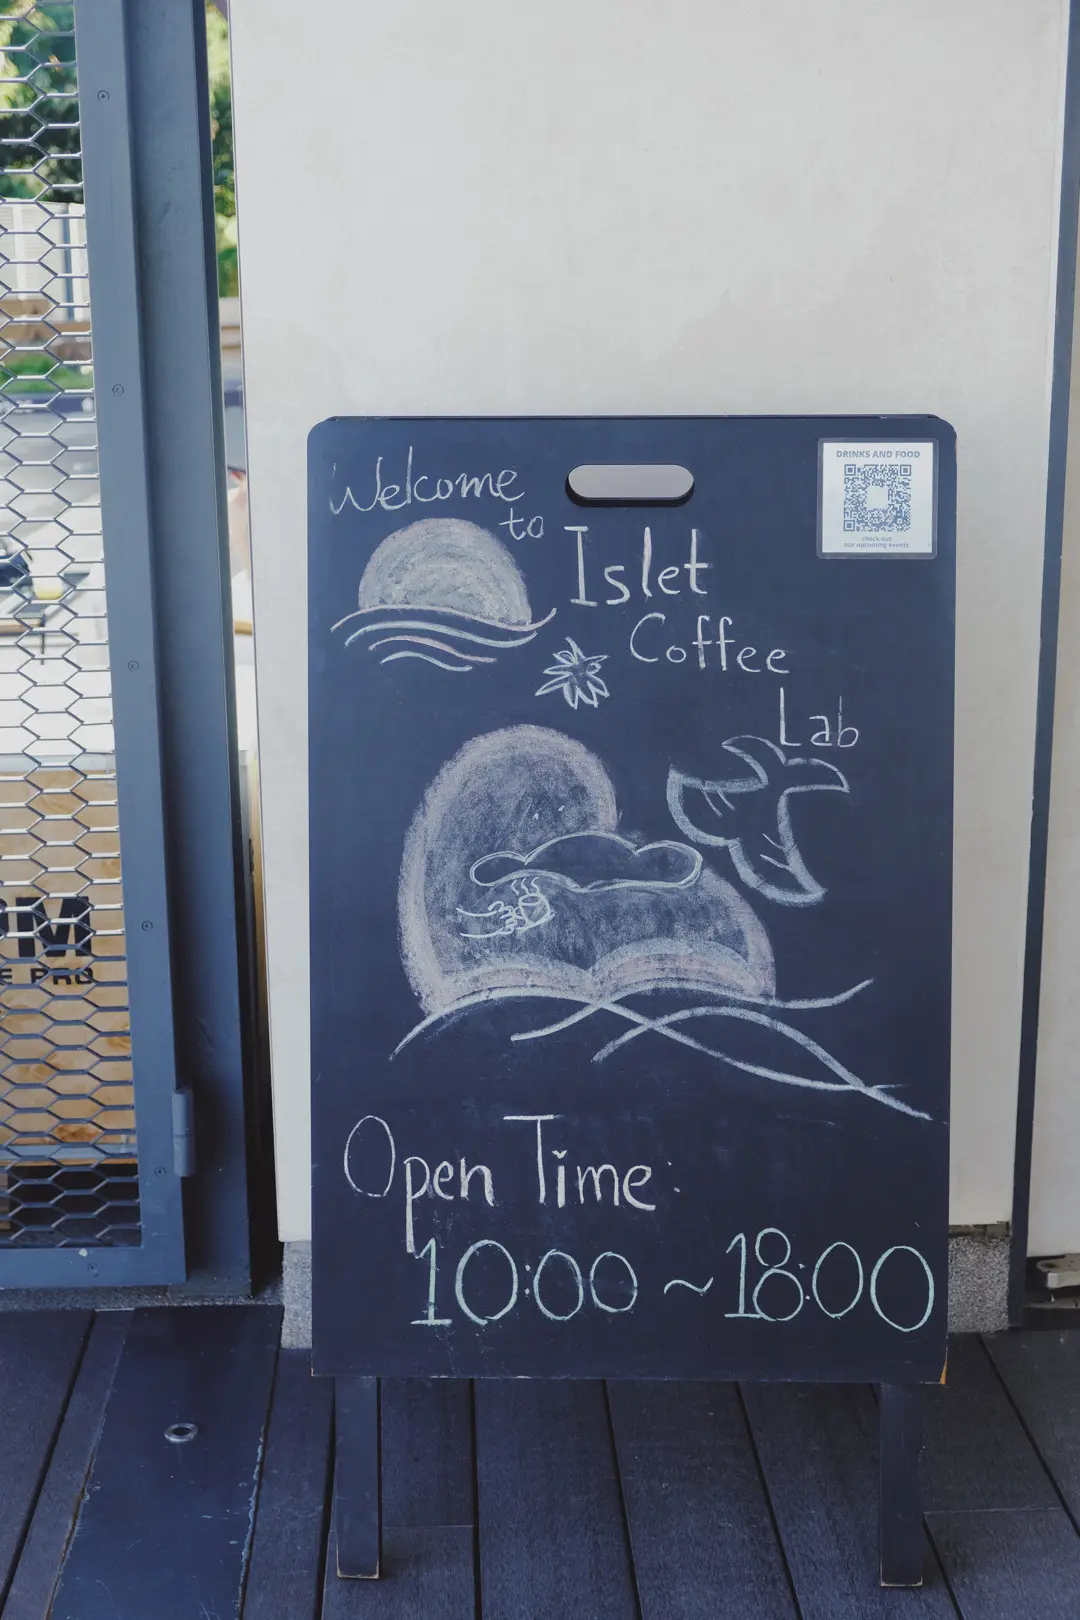 Welcome
to
Islet
Coffee
Lab
DRINKS AND FOOD
check out
our upcoming events
Open Time:
10:00 ~ 18:00
M
E PRO